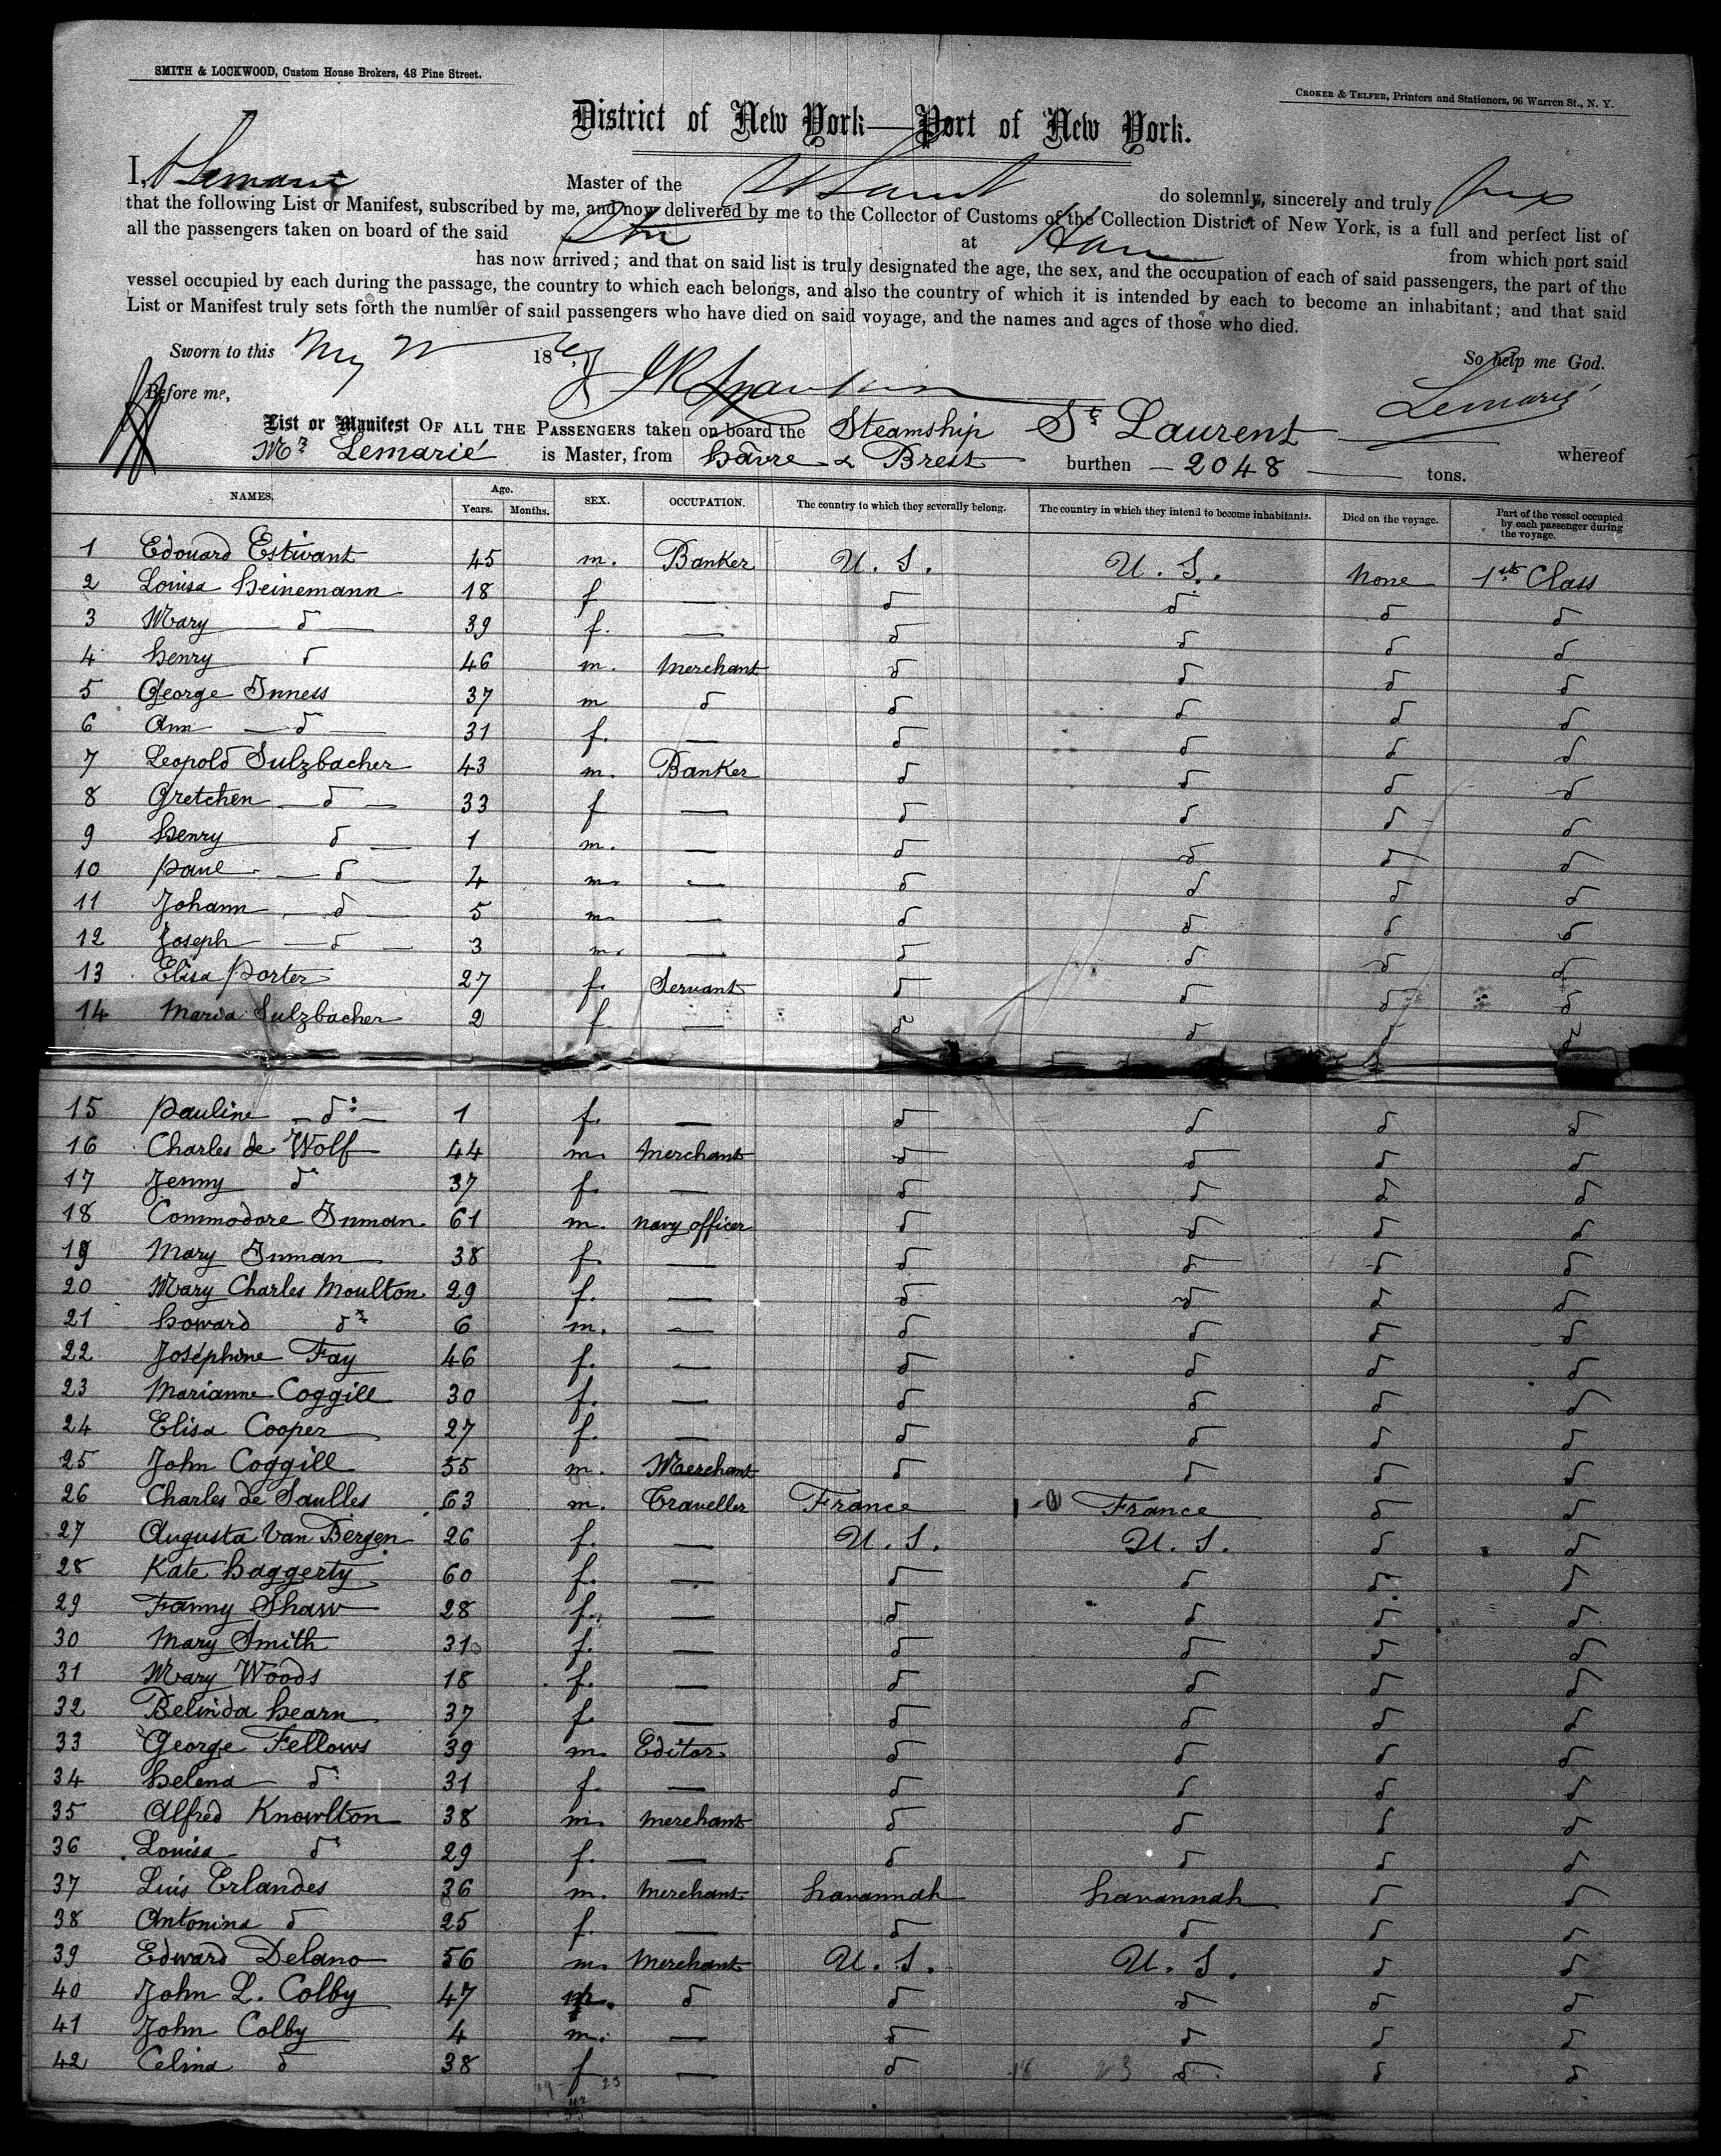 SMITH & LOCKWOOD, Custom House Brokers, 48 Pine Street.
CROKER & TELFER, Printers and Stationers, 96 Warren St., N. Y.
District of New York—Port of New York.
I, Lemarie Master of the St Laurent do solemnly, sincerely and truly
that the following List or Manifest, subscribed by me, and now delivered by me to the Collector of Customs of the Collection District of New York, is a full and perfect list of
all the passengers taken on board of the said at from which port said
has now arrived; and that on said list is truly designated the age, the sex, and the occupation of each of said passengers, the part of the
vessel occupied by each during the passage, the country to which each belongs, and also the country of which it is intended by each to become an inhabitant; and that said
List or Manifest truly sets forth the number of said passengers who have died on said voyage, and the names and ages of those who died.
Sworn to this 18 So help me God.
Before me, Lemarié
List or Manifest OF ALL THE PASSENGERS taken on board the Steamship St Laurent whereof
Mr Lemarié is Master, from havre & Brest burthen — 2048 — tons.
NAMES. Age. Years. Months. SEX. OCCUPATION. The country to which they severally belong. The country in which they intend to become inhabitants. Died on the voyage. Part of the vessel occupied by each passenger during the voyage.
1 Edouard Estivant 45 m. Banker U. S. U. S. None 1st Class
2 Louisa heinemann 18 f — d d d d
3 Mary d 39 f. — d d d d
4 henry d 46 m. Merchant d d d d
5 George Inness 37 m d d d d d
6 Ann d 31 f. — d d d d
7 Leopold Sulzbacher 43 m. Banker d d d d
8 Gretchen d 33 f — d d d d
9 henry d 1 m. — d d d d
10 Paul d 4 m. — d d d d
11 Johann d 5 m. — d d d d
12 Joseph d 3 m. — d d d d
13 Elisa Porter 27 f. Servant d d d d
14 Maria Sulzbacher 2 f — d d d d
15 Pauline do 1 f. — d d d d
16 Charles de Wolf 44 m. Merchant d d d d
17 Jenny d 37 f. — d d d d
18 Commodore Inman 61 m. navy officer d d d d
19 Mary Inman 38 f. — d d d d
20 Mary Charles Moulton 29 f. — d d d d
21 howard do 6 m. — d d d d
22 Joséphine Fay 46 f. — d d d d
23 Marianne Coggill 30 f. — d d d d
24 Elisa Cooper 27 f. — d d d d
25 John Coggill 55 m. Merchant d d d d
26 Charles de Saulles 63 m. Traveller France France d d
27 Augusta Van Bergen 26 f. — U. S. U. S. d d
28 Kate haggerty 60 f. — d d d d
29 Fanny Shaw 28 f. — d d d d
30 Mary Smith 31 f. — d d d d
31 Mary Woods 18 f. — d d d d
32 Belinda hearn 37 f. — d d d d
33 George Fellows 39 m. Editor d d d d
34 helena d 31 f. — d d d d
35 Alfred Knowlton 38 m. merchant d d d d
36 Louisa d 29 f. — d d d d
37 Luis Erlandes 36 m. merchant havannah havannah d d
38 Antonina d 25 f. — d d d d
39 Edward Delano 56 m. merchant U. S. U. S. d d
40 John L. Colby 47 m. d d d d d
41 John Colby 4 m. — d d d d
42 Celina d 38 f — d d d d
19 23 18 23